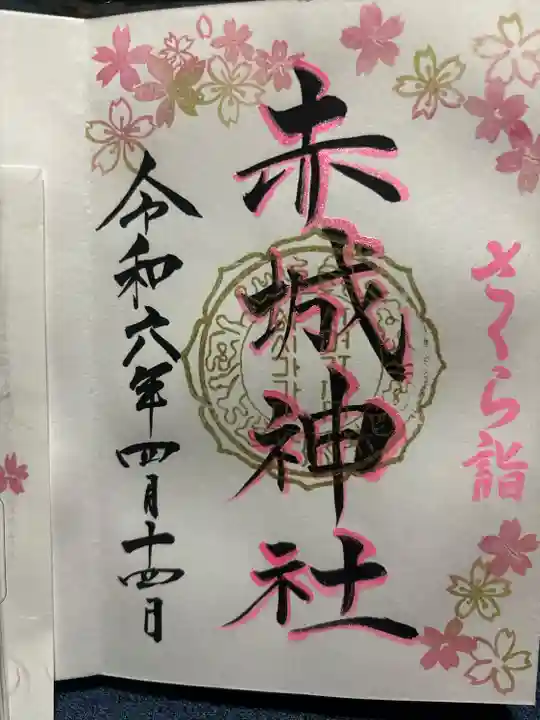 さくら詣
赤城神社
令和六年四月十四日